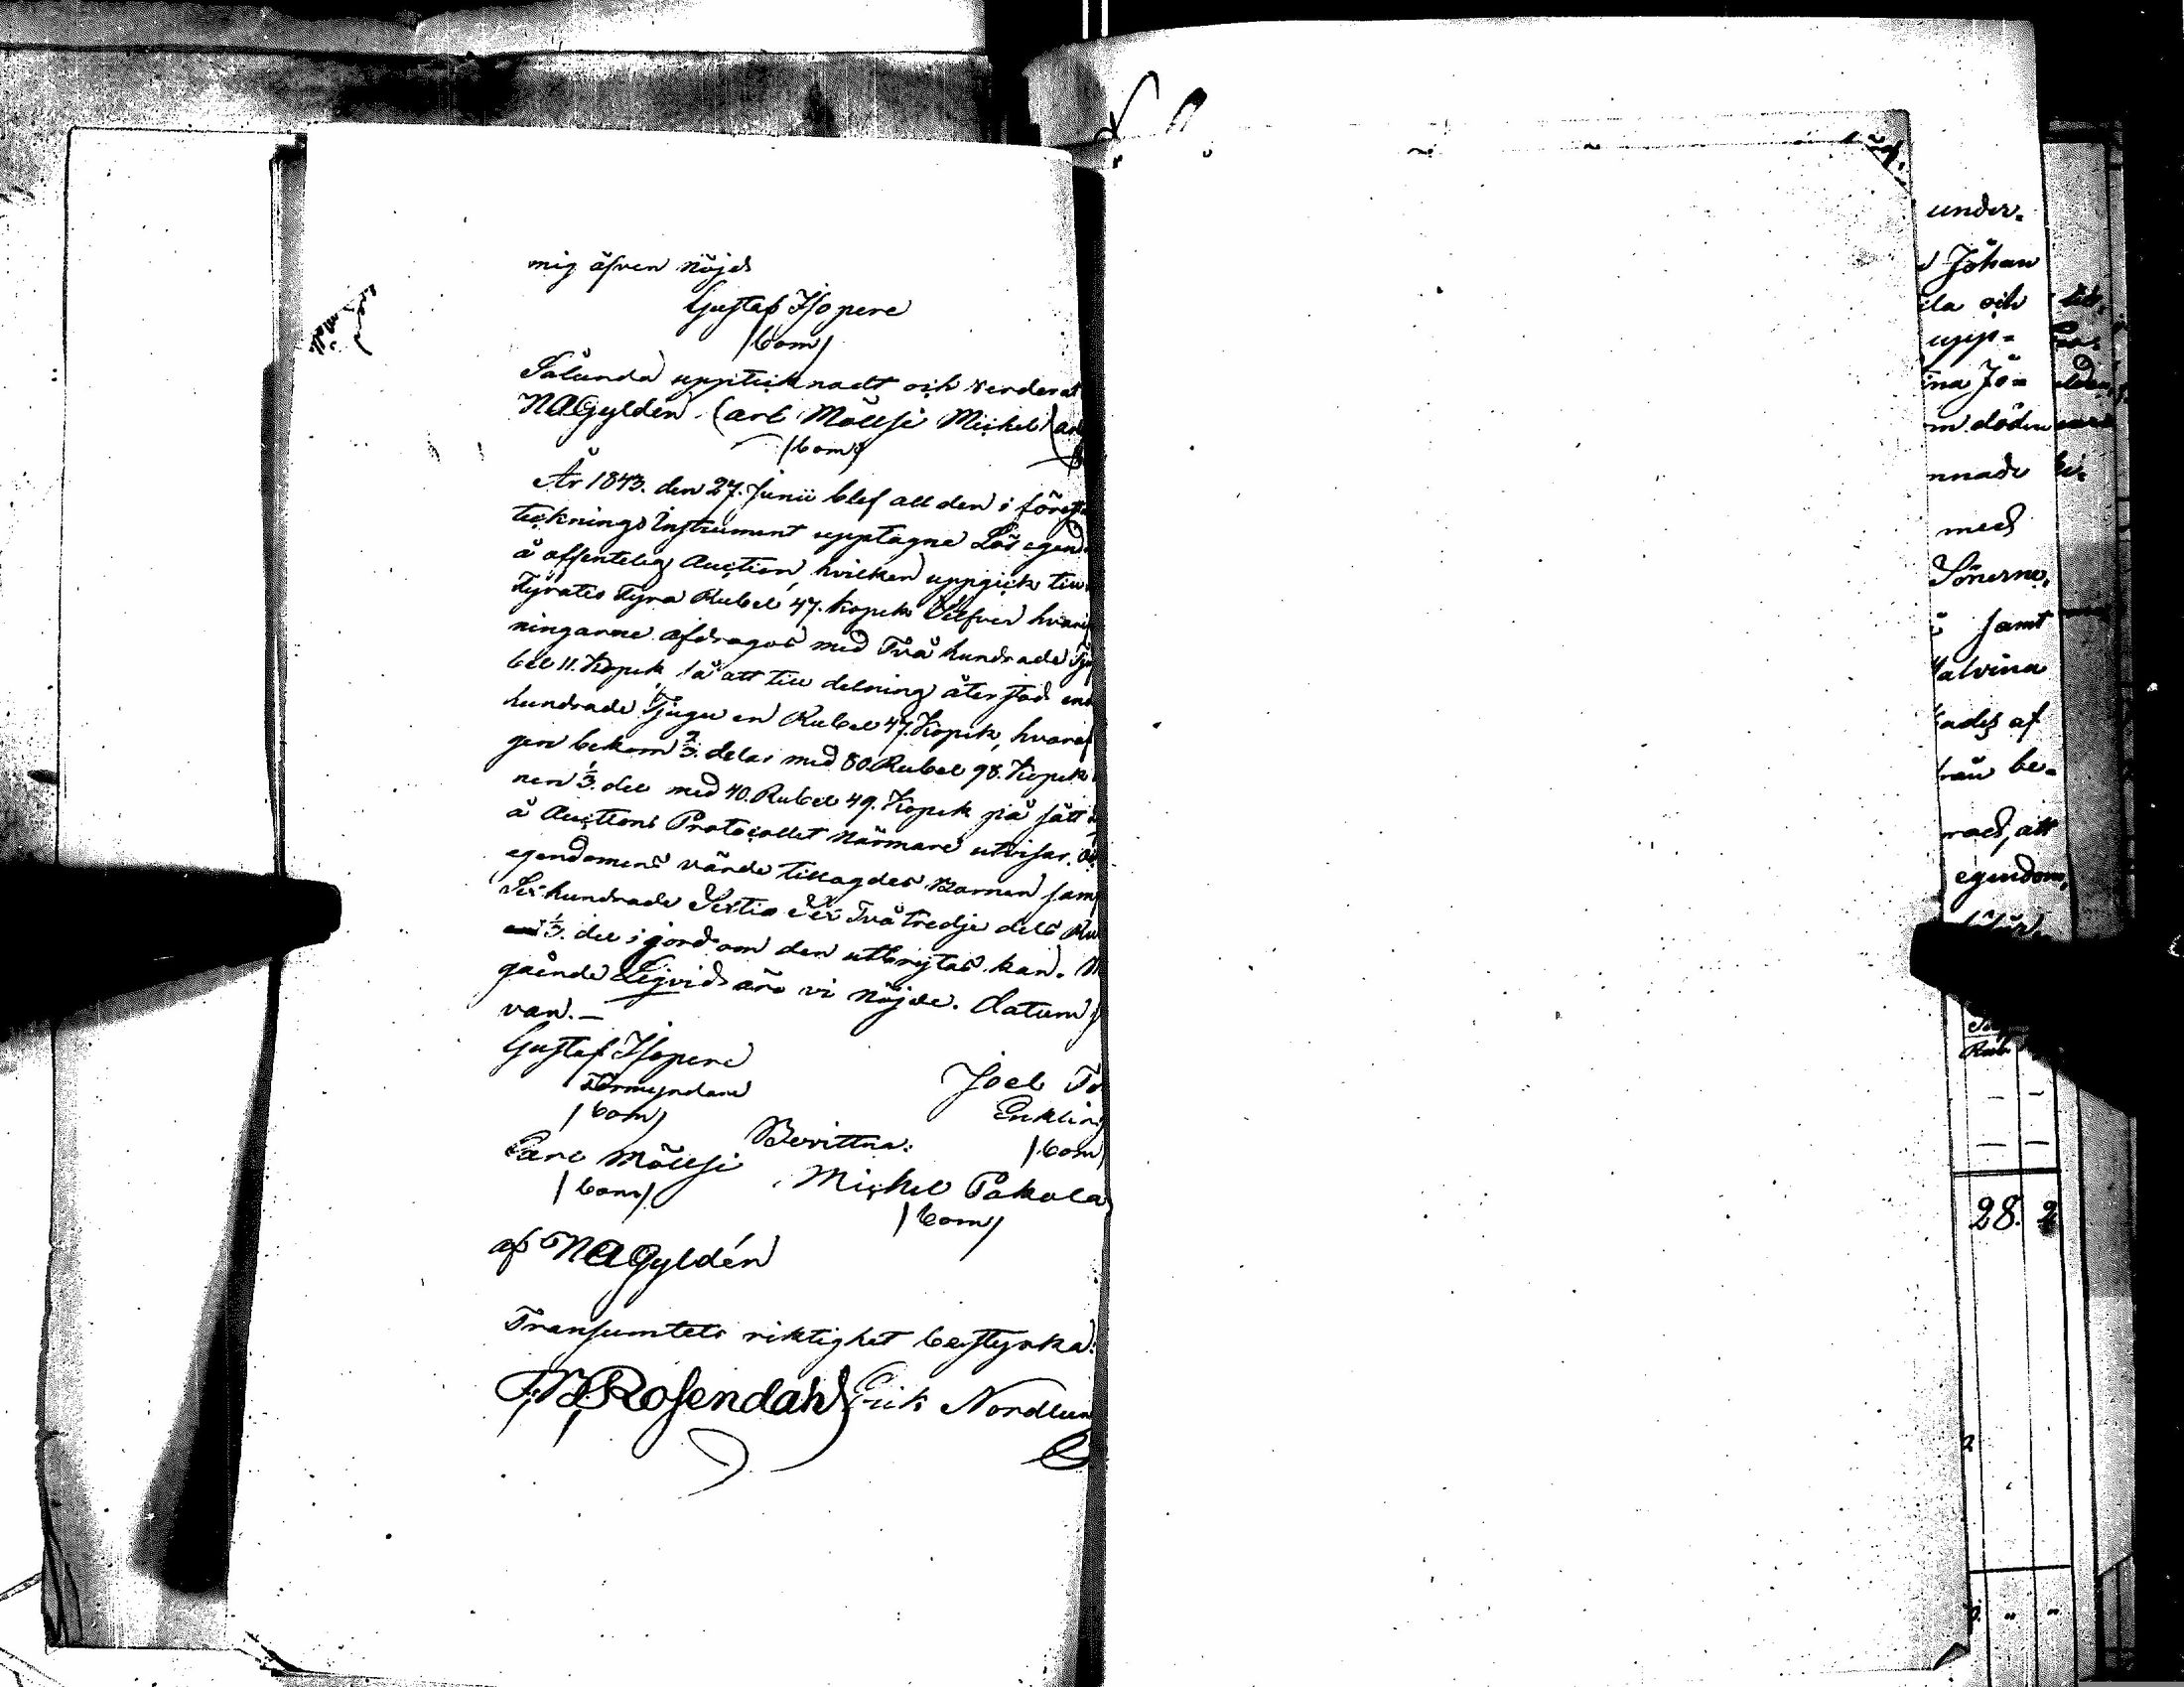 mig äfven nöjd
Gustaf Isopere
/bom/
Sålunda upptecknadt och verderat
NAGyldén. Carl Mållsi Michel
/bom/
År 1843. den 27. Junii blef all den i förest
teknings Instrument upptagne Lös egend
å offentelig Auction, hvilken uppgick till
Fyratio Fyra Rubel 47. kopek Silfver hvari
ningarne afdragos med Två hundrade Tju
bel 11. Kopek, så att till delning återstod en
hundrade Tjugu en Rubel 47. Kopek, hvaraf
gen bekom 2/3. delar med 80. Rubel 98. Kopek
nen 1/3. del med 40. Rubel 49. Kopek på sätt
å Auctions Protocollet närmare utvisar.
egendomens värde tillagdes Barnen sam
Sexhundrade Sextio Sex Två tredje dels Ru
1/3. del i jord om den utbrytas kan.
gående Liqvid äro vi nöjde. Datum
van.—
Gustaf Isopere
Förmyndare
/bom/
Joel
Enkling
/bom/
Bevittna:
Carl Mållsi
/bom/
Michel Pakola
/bom/
af NAGyldén
Transumtets riktighet bestyrka:
Rosendahl Erik Nordlun
under-
Johan
la och
upp-
ina Jo-
m döden
nnade
med
Sönerne,
samt
alvina
ades af
rån be-
rad, att
egendom,
Rub.
28. 2